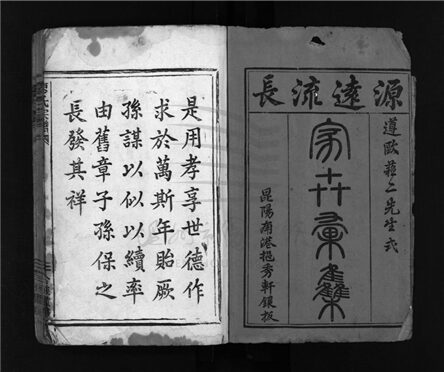 源遠流長
遵歐蘇二先生式
家世彙集
昆陽南港挹秀軒鋟板
是用孝享世德作
求於萬斯年貽厥
孫謀以似以續率
由舊章子孫保之
長發其祥